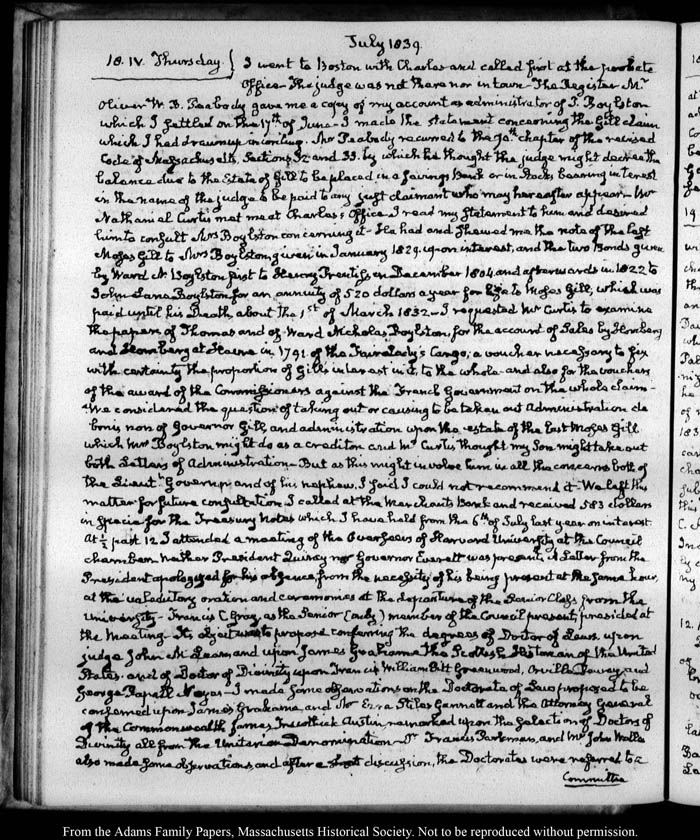 July 1839.
18. IV. Thursday. } I went to Boston with Charles and called first at the probate
Office. The judge was not there nor in town. The Register Mr
Oliver W. B. Peabody gave me a copy of my account as administrator of T. Boylston
which I settled on the 17th of June. I made the statement concerning the Gill claim
which I had drawn up in writing. Mr Peabody recurred to the 70th chapter of the revised
Code of Massachusetts, Sections 32 and 33. by which he thought the judge might decree the
balance due to the Estate of Gill to be placed in a Savings Bank or in Stock, bearing interest
in the name of the judge to be paid to any just claimant who may hereafter appear. Mr
Nathaniel Curtis met me at Charles's Office. I read my Statement to him and desired
him to consult Mrs Boylston concerning it. He had and shewed me the note of the last
Moses Gill to Mrs Boylston, given in January 1829. upon interest, and the two Bonds given
by Ward N. Boylston first to Henry Prentiss in December 1804 and afterwards in 1822 to
John Lane Boylston for an annuity of 520 dollars a year for life to Moses Gill, which was
paid until his Death, about the 1st of March 1832. I requested Mr Curtis to examine
the papers of Thomas and of Ward Nicholas Boylston, for the account of Sales by Homberg
and Homberg at Havre in 1791. of the Fair Lady's Cargo; a voucher necessary to fix
with certainty the proportion of Gill's interest in it, to the whole and also for the vouchers
of the award of the Commissioners against the French Government on the whole claim.
We considered the question of taking out or causing to be taken out Administration de
bonis non of Governor Gill, and administration upon the estate of the last Moses Gill
which Mrs Boylston might do as a creditor and Mr Curtis thought my Son might take out
both Letters of Administration. But as this might involve him in all the concerns both of
the Lieut. Governor and of his nephew, I said I could not recommend it. We left this
matter for future consultation. I called at the Merchants Bank and received 583 dollars
in specie for the Treasury Notes which I have held from the 6th of July last year on interest.
At ½ past 12. I attended a meeting of the Overseers of Harvard University at the Council
chamber. neither President Quincy nor Governor Everett was present; a Letter from the
President apologized for his absence from the necessity of his being present at the same hour,
at the valedictory oration and ceremonies at the departure of the Senior Class from the
University. Francis C. Gray, as the Senior (only) member of the Council present, presided at
the meeting. Its object was to propose conferring the degrees of Doctor of Laws, upon
judge John McLean, and upon James Grahame the Scottish Historian of the United
States. and of Doctor of Divinity upon Francis William Pitt Greenwood, Orville Dewey, and
George Rapall Noyes. I made some observations on the Doctorate of Laws proposed to be
conferred upon James Grahame, and Mr Ezra Stiles Gannett and the Attorney General
of the Commonwealth James Trecothick Austin, remarked upon the selection of Doctors of
Divinity all from the Unitarian Denomination. Dr Francis Parkman, and Mr John Walles
also made some observations, and after a short discussion, the Doctorates were referred to a
Committee
From the Adams Family Papers, Massachusetts Historical Society. Not to be reproduced without permission.